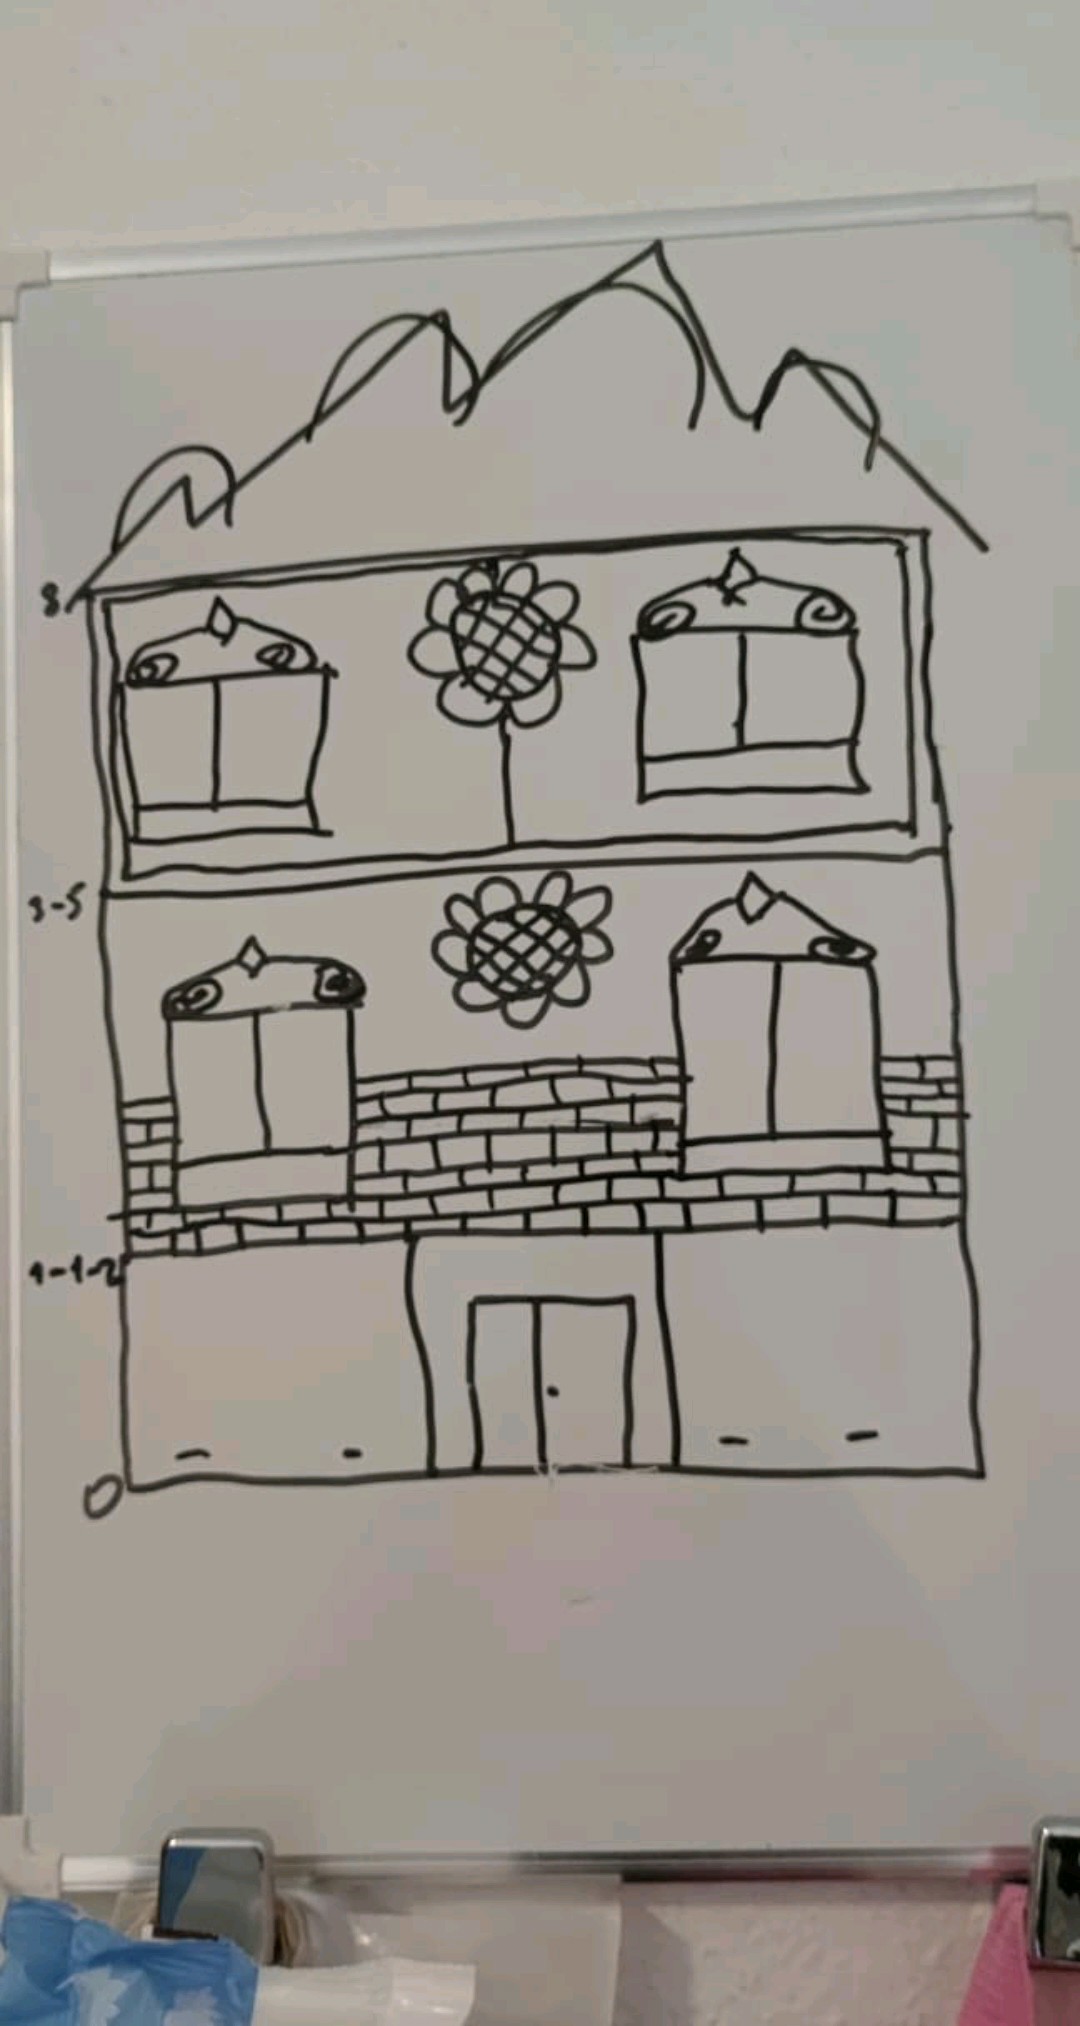 8
3-5
1-1-2
0